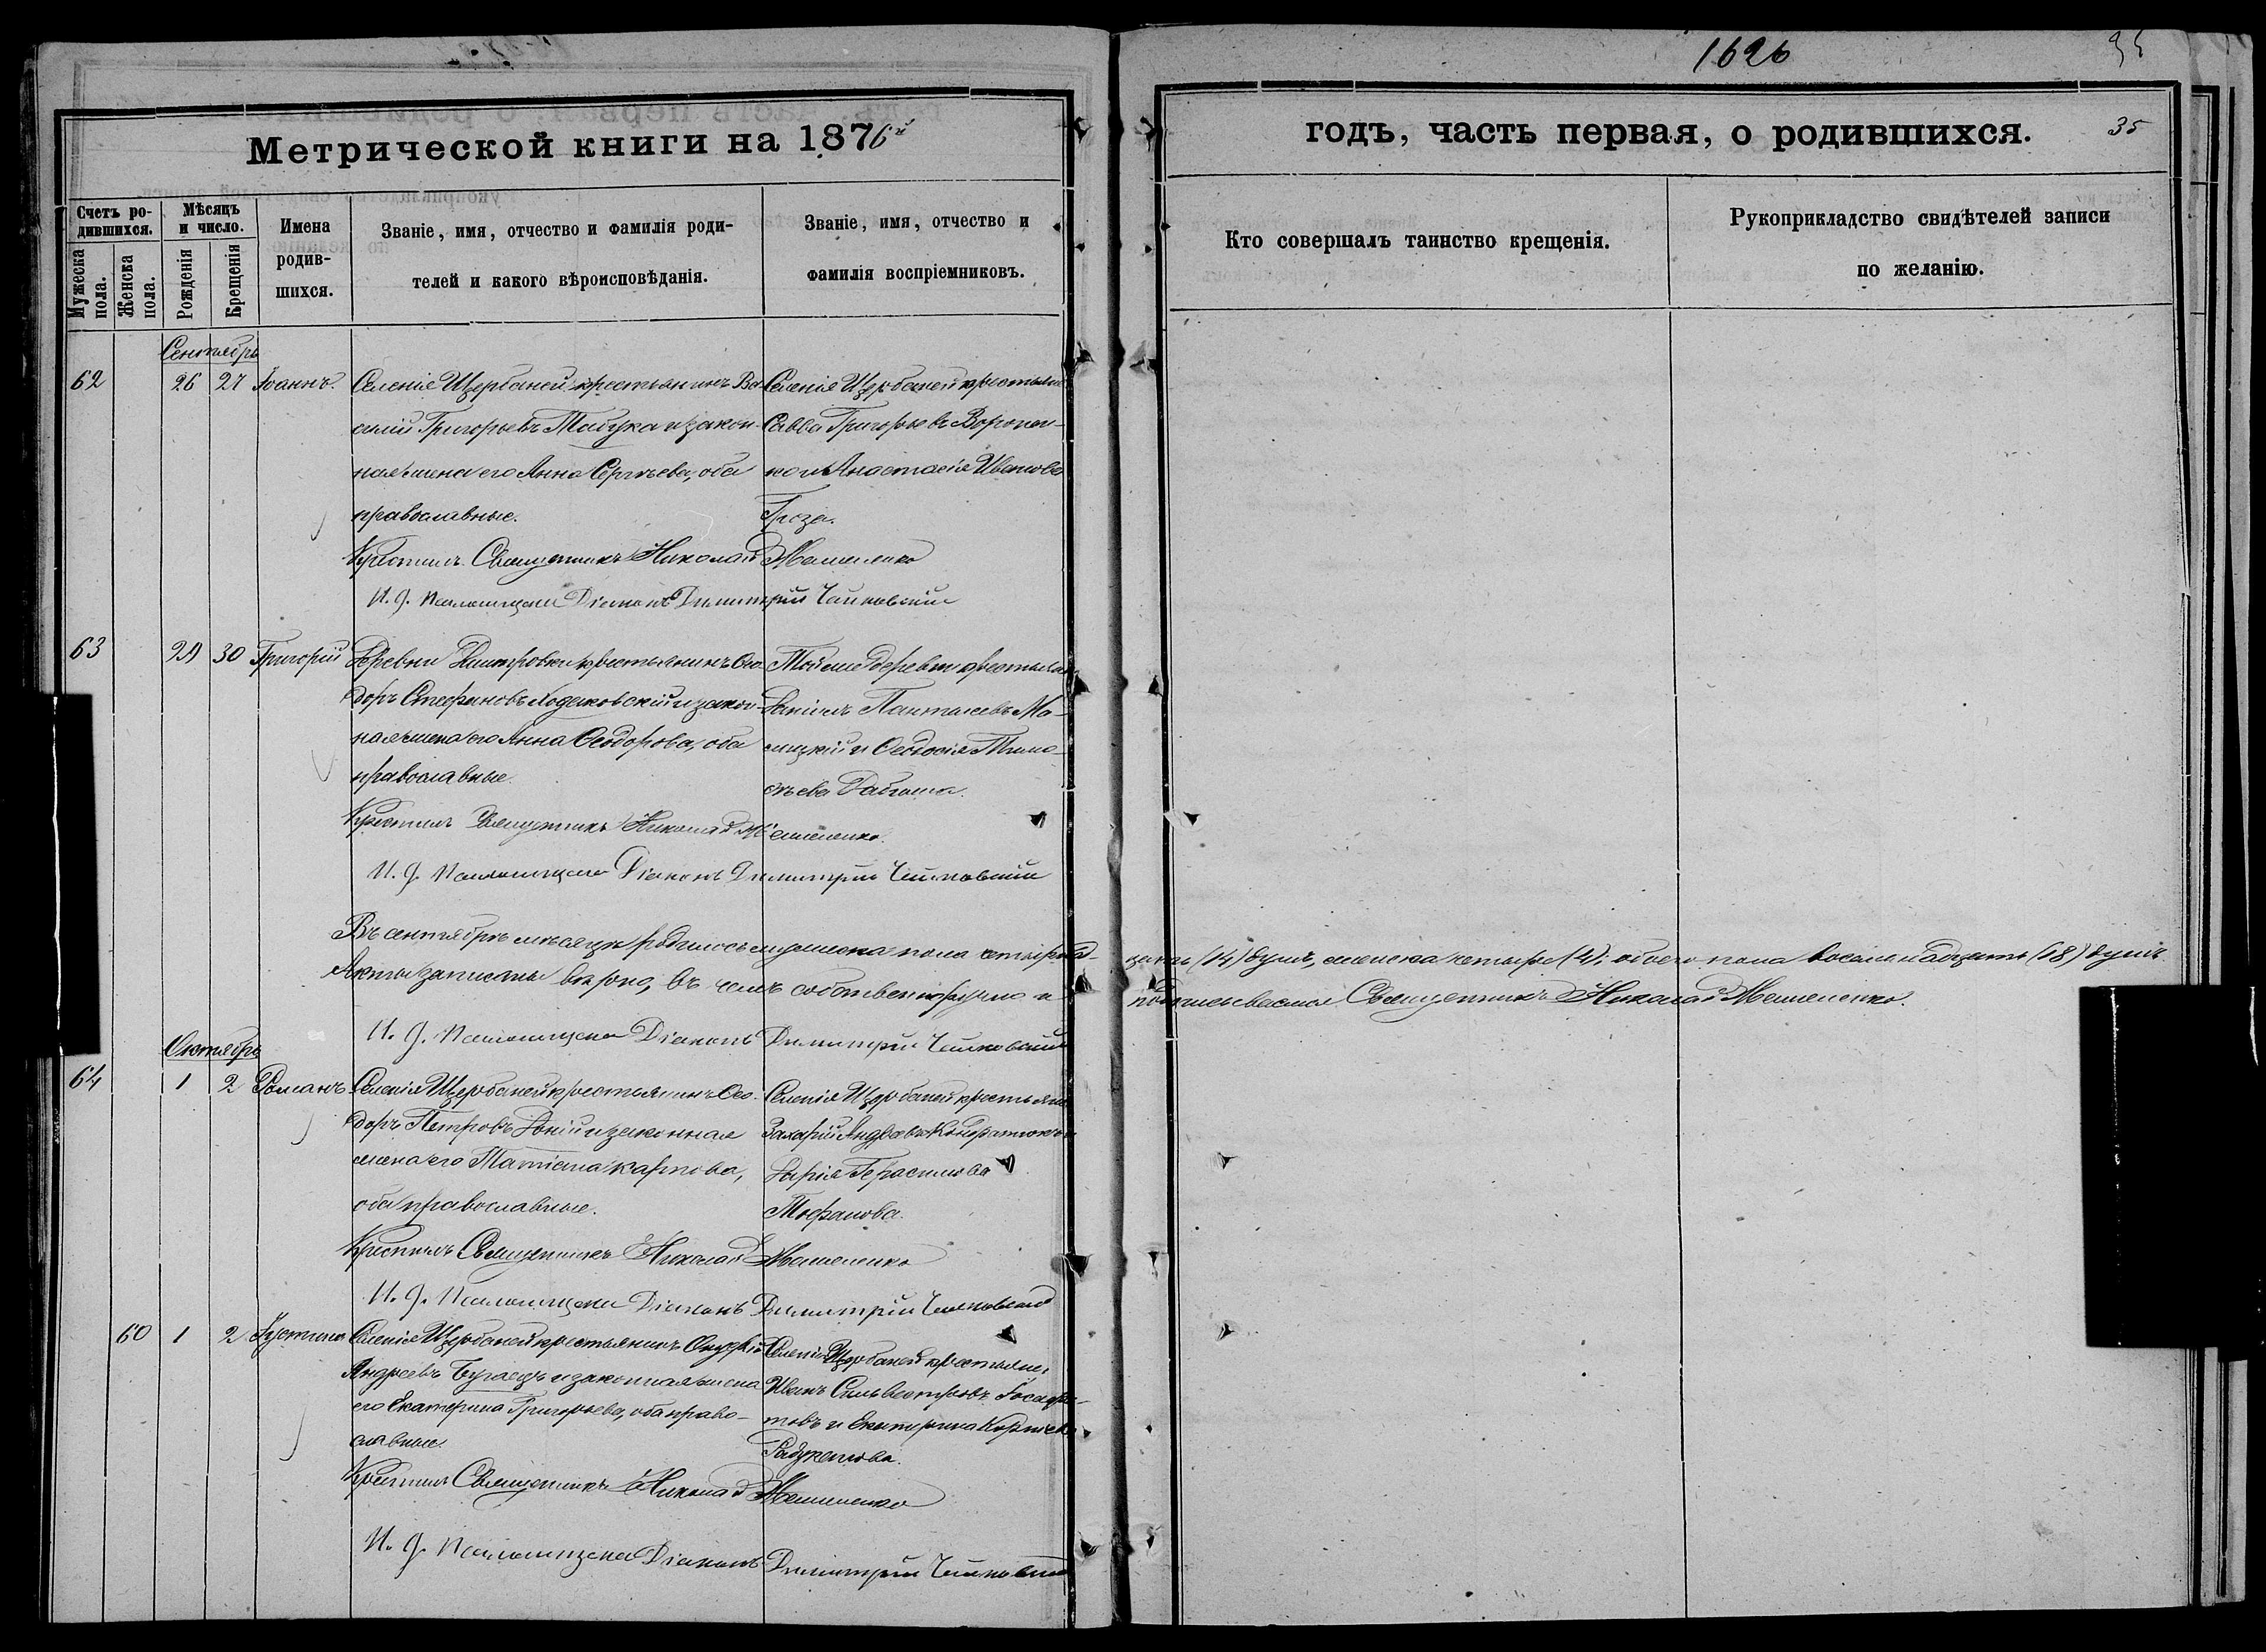 1626
35
Метрической книги на 1876й
годъ, часть первая, о родившихся. 35
Счетъ ро-
дившихся.
Мужеска пола.
Женска пола.
Мѣсяцъ и число.
Рожденія
Крещенія
Имена
родив-
шихся.
Званіе, имя, отчество и фамилія роди-
телей и какого вѣроисповѣданія.
Званіе, имя, отчество и
фамилія воспріемниковъ.
Кто совершалъ таинство крещенія.
Рукоприкладство свидѣтелей записи
по желанію.
Сентябрь
62 26 27 Іоаннъ.
Селенія Щербаней крестьянинъ Ва-
силій Григорьевъ и закон-
ная жена его Анна Сергѣева, оба
православные.
Селенія Щербаней крестьяне
Савва Григорьевъ Воропай-
ко и Анастасія Иванова
Гроза.
Крестилъ Священникъ Николай
И. д. Псаломщика Діаконъ Димитрій Чайковскій
63 29 30 Григорій
Деревни Дмитровки крестьянинъ Ѳео-
доръ Стефановъ Ходаковскій и закон-
ная жена его Анна Ѳеодорова, оба
православные.
Той же деревни крестьяне
Даніилъ
и Ѳеодосія Тимо-
ѳѣева
Крестилъ Священникъ Николай
И. д. Псаломщика Діаконъ Димитрій Чайковскій
Въ сентябрѣ мѣсяцѣ родилось мужеска пола четырнад-
цать (14) душъ, женска четыре (4), обоего пола восемнадцать (18) душъ.
Акты записаны вѣрно, въ чемъ собственноручно и
подписываемся Священникъ Николай
И. д. Псаломщика Діаконъ Димитрій Чайковскій
Октябрь
64 1 2 Романъ
Селенія Щербаней крестьянинъ Ѳео-
доръ Петровъ и законная
жена его Татіана Карпова,
оба православные.
Селенія Щербаней крестьяне
Захарій
Дарія Герасимова
Тюфанова.
Крестилъ Священникъ Николай
И. д. Псаломщика Діаконъ Димитрій Чайковскій
60 1 2 Іустина
Селенія Щербаней крестьянинъ Онуфрій
Андреевъ Бугаецъ и законная жена
его Екатерина Григорьева, оба право-
славные.
Селенія Щербаней крестьяне
Иванъ Сильвестровъ
и Екатерина
Крестилъ Священникъ Николай
И. д. Псаломщика Діаконъ Димитрій Чайковскій